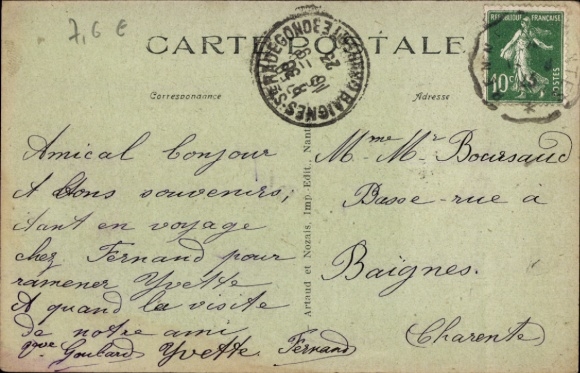 7,6 E
CARTE POSTALE
Correspondance
Adresse
RÉPUBLIQUE FRANÇAISE
10c
POSTES
BAIGNES-STE-RADEGONDE
Artaud et Nozais, Imp.-Edit., Nant
Amical bonjour
& bons souvenirs;
étant en voyage
chez Fernand pour
ramener Yvette
A quand la visite
de notre ami
Goubard Yvette Fernand
Mme Mr Boursaud
Basse-rue à
Baignes.
Charente